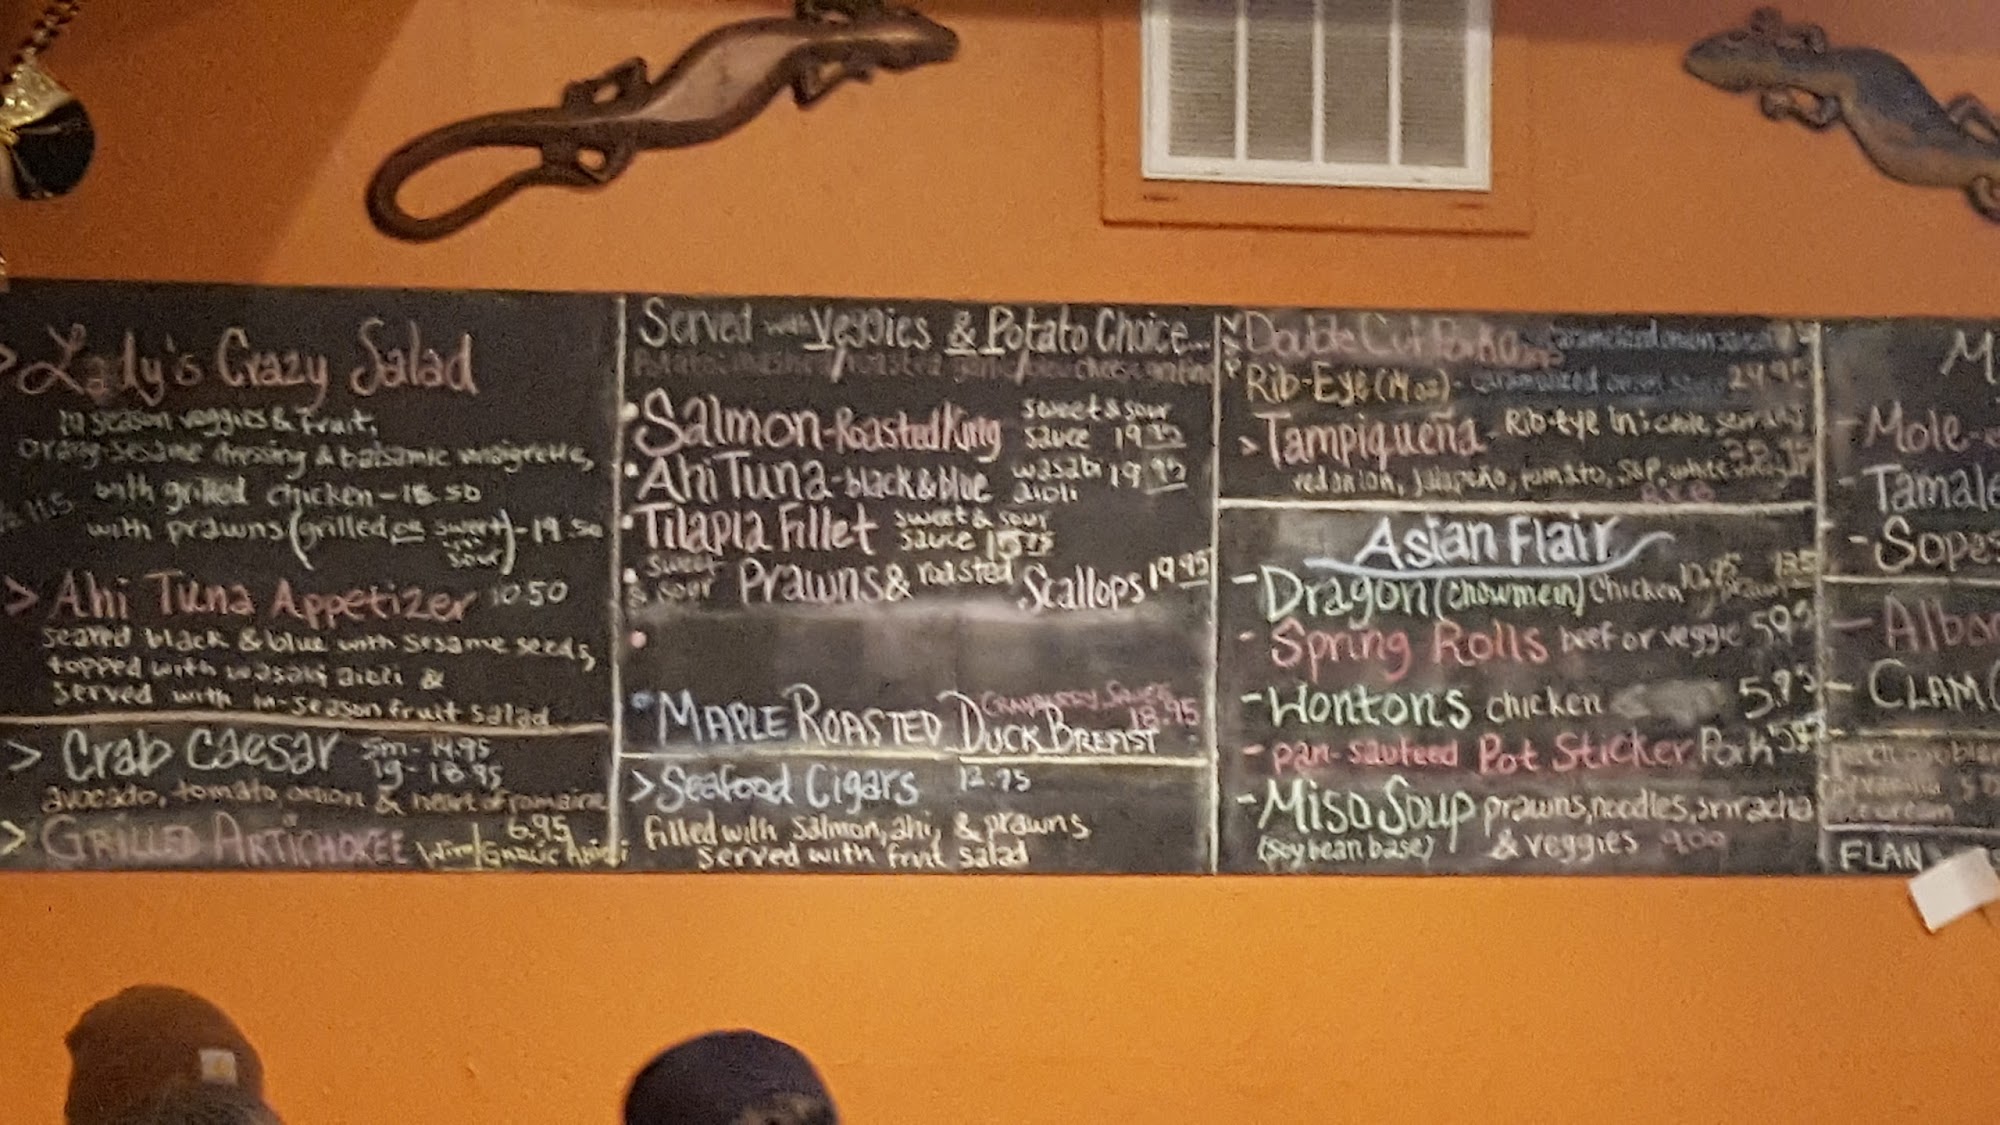 > Lady's Crazy Salad
in season veggies & fruit,
orang-sesame dressing & balsamic vnaigrette,
with grilled chicken - 16.50
with prawns (grilled or sweet & sour) - 19.50
> Ahi Tuna Appetizer 10.50
seared black & blue with sesame seeds,
topped with wasabi aioli &
served with in-season fruit salad
> Crab Caesar sm - 14.95
lg - 18.95
avocado, tomato, onion & heart of romaine
> GRILLED ARTICHOKEE 6.95
w/ Garlic Aioli
Served with Veggies & Potato Choice...
• Salmon - Roasted King sweet & sour
sauce 19.95
• Ahi Tuna - black & blue wasabi 19.95
aioli
• Tilapia Fillet sweet & sour
sauce 15.75
• sweet & sour Prawns & roasted Scallops 19.95
• MAPLE ROASTED DUCK BREAST CRANBERRY SAUCE 18.95
> Seafood Cigars 12.75
filled with salmon, ahi, & prawns
served with fruit salad
Double Cut Pork
Rib-Eye (14oz) - caramelized onion 24.95
> Tampiqueña - Rib-eye in
red onion, jalapeño, tomato, S&P, white
Asian Flair
- Dragon (chowmein) Chicken 10.95
- Spring Rolls beef or veggie 5.95
- Wontons chicken 5.95
- pan-sauteed Pot Sticker Pork 5.95
- Miso Soup prawns, noodles, sriracha
(soybean base) & veggies 9.00
- Mole-
- Tamale
- Sopes
- Albon
- CLAM
FLAN